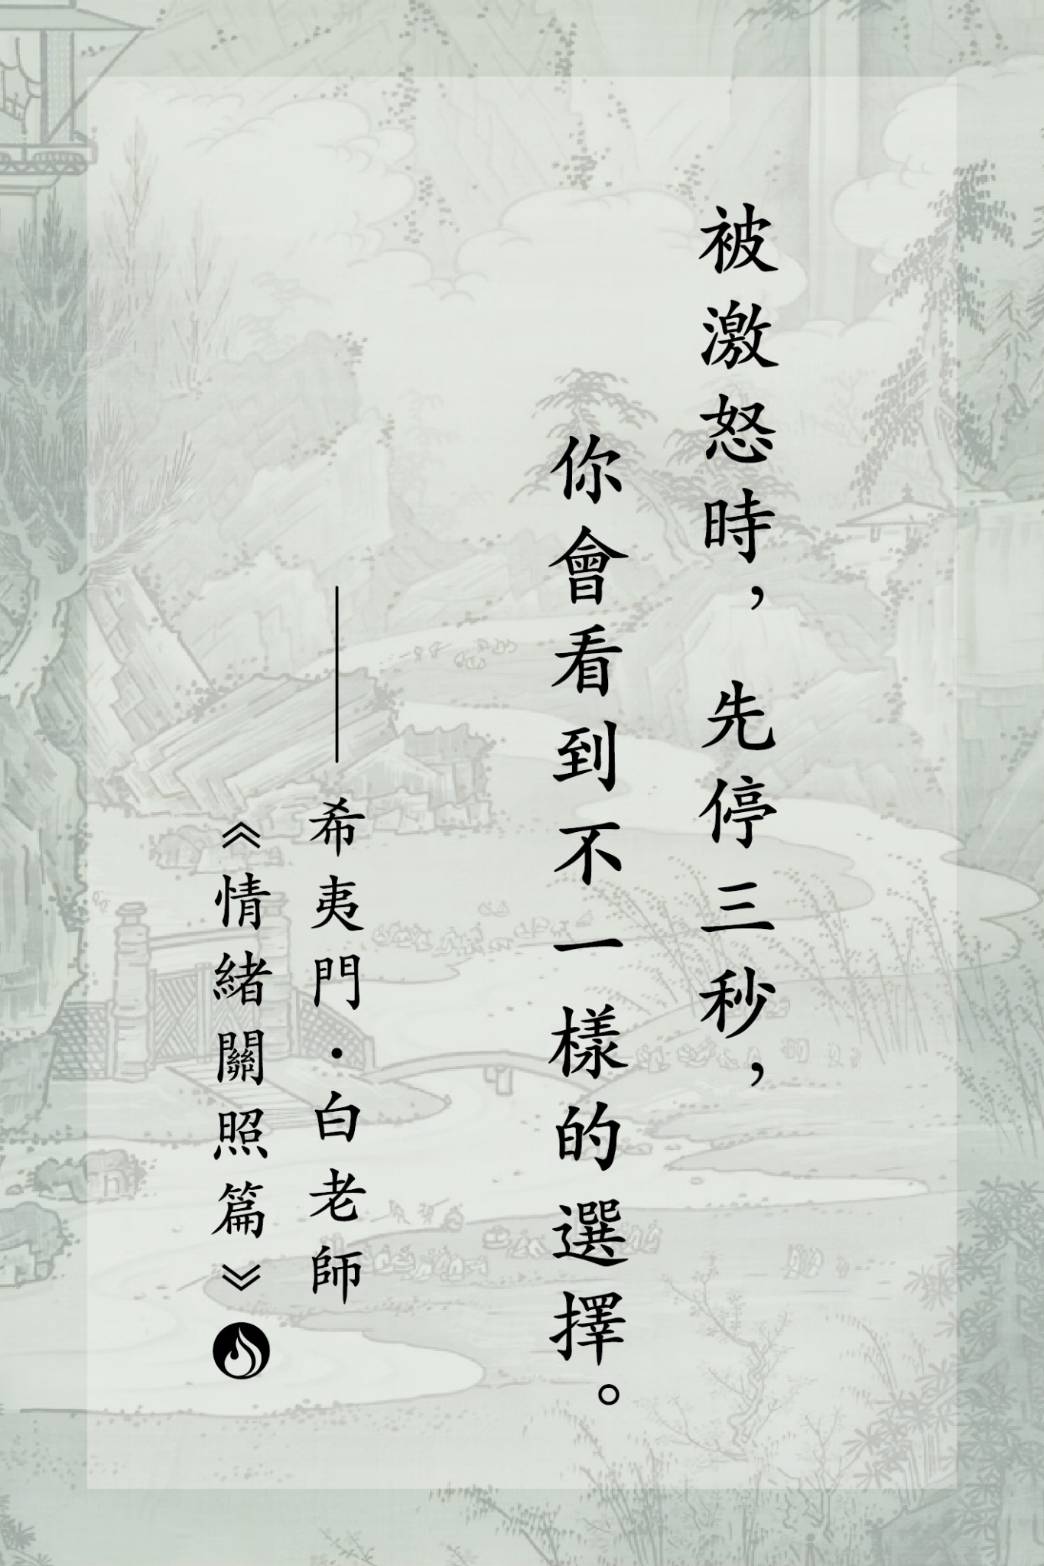 被激怒時，先停三秒，
你會看到不一樣的選擇。
——希夷門・白老師
《情緒關照篇》